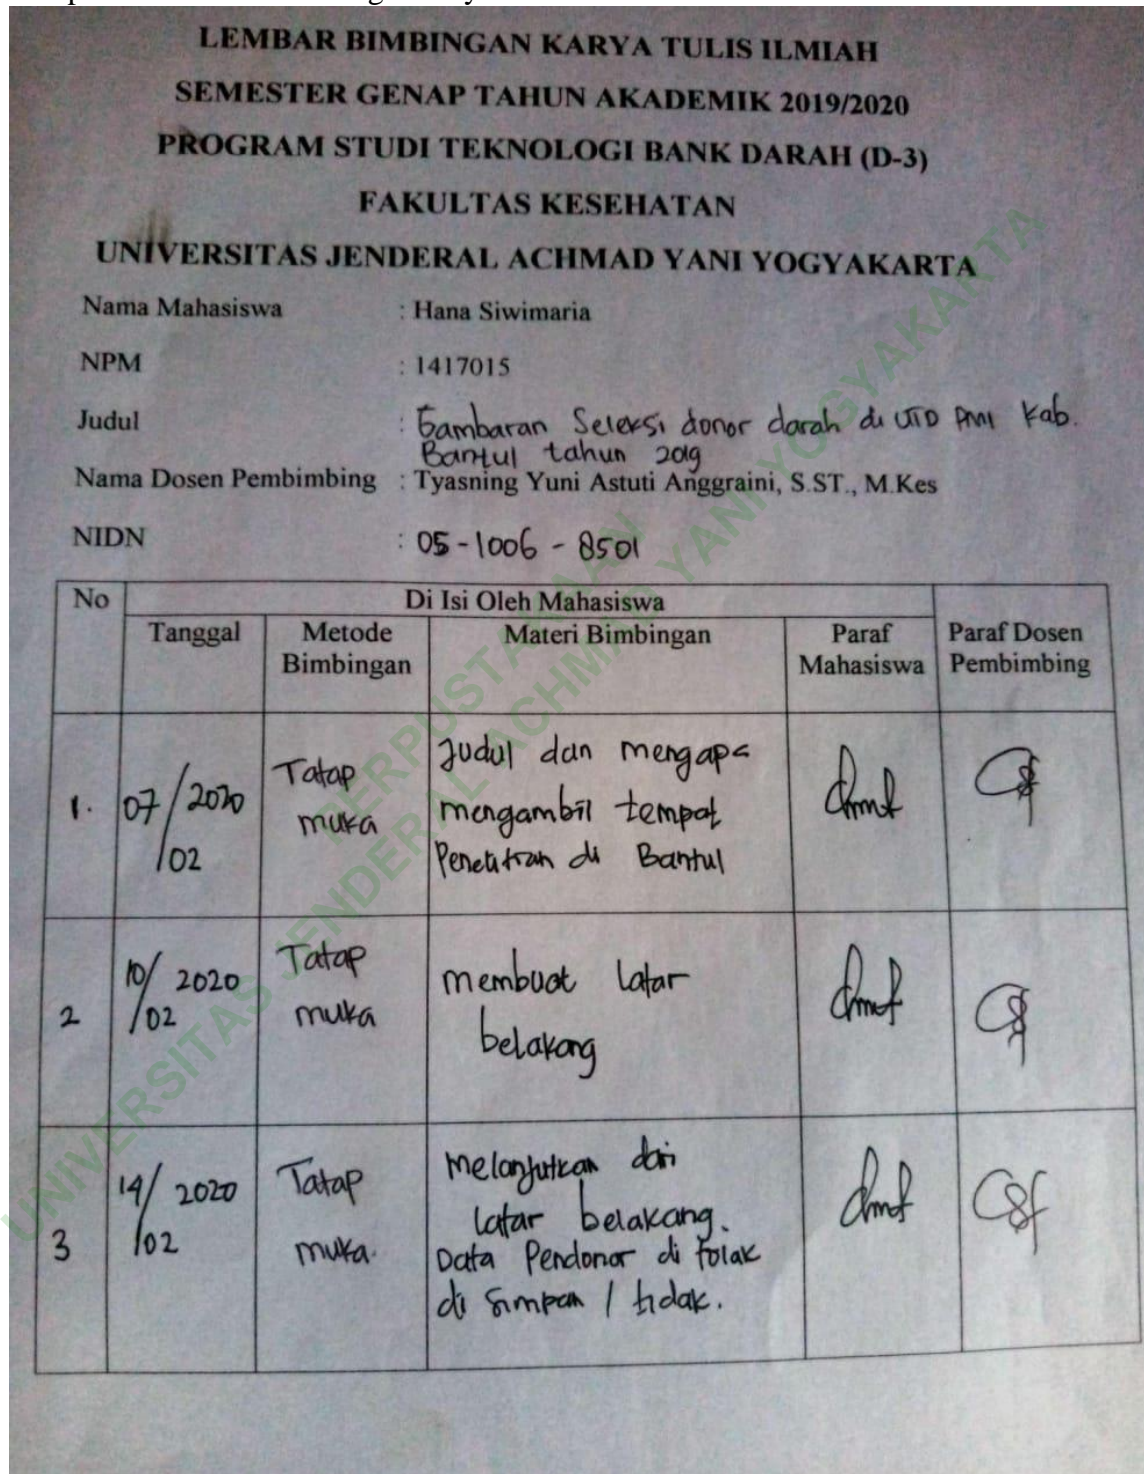 LEMBAR BIMBINGAN KARYA TULIS ILMIAH
SEMESTER GENAP TAHUN AKADEMIK 2019/2020
PROGRAM STUDI TEKNOLOGI BANK DARAH (D-3)
FAKULTAS KESEHATAN
UNIVERSITAS JENDERAL ACHMAD YANI YOGYAKARTA
Nama Mahasiswa : Hana Siwimaria
NPM : 1417015
Judul : Gambaran Seleksi donor darah di UTD PMI Kab.
Bantul tahun 2019
Nama Dosen Pembimbing : Tyasning Yuni Astuti Anggraini, S.ST., M.Kes
NIDN : 05-1006-8501
No Di Isi Oleh Mahasiswa
Tanggal Metode Materi Bimbingan Paraf Paraf Dosen
Bimbingan Mahasiswa Pembimbing
1. 07/02/2020 Tatap Judul dan mengapa
muka mengambil tempat
Penelitian di Bantul
2 10/02/2020 Tatap membuat latar
muka belakang
3 14/02/2020 Tatap melanjutkan dari
muka. latar belakang.
Data Pendonor di tolak
di simpan / tidak.
PERPUSTAKAAN
UNIVERSITAS JENDERAL ACHMAD YANI YOGYAKARTA